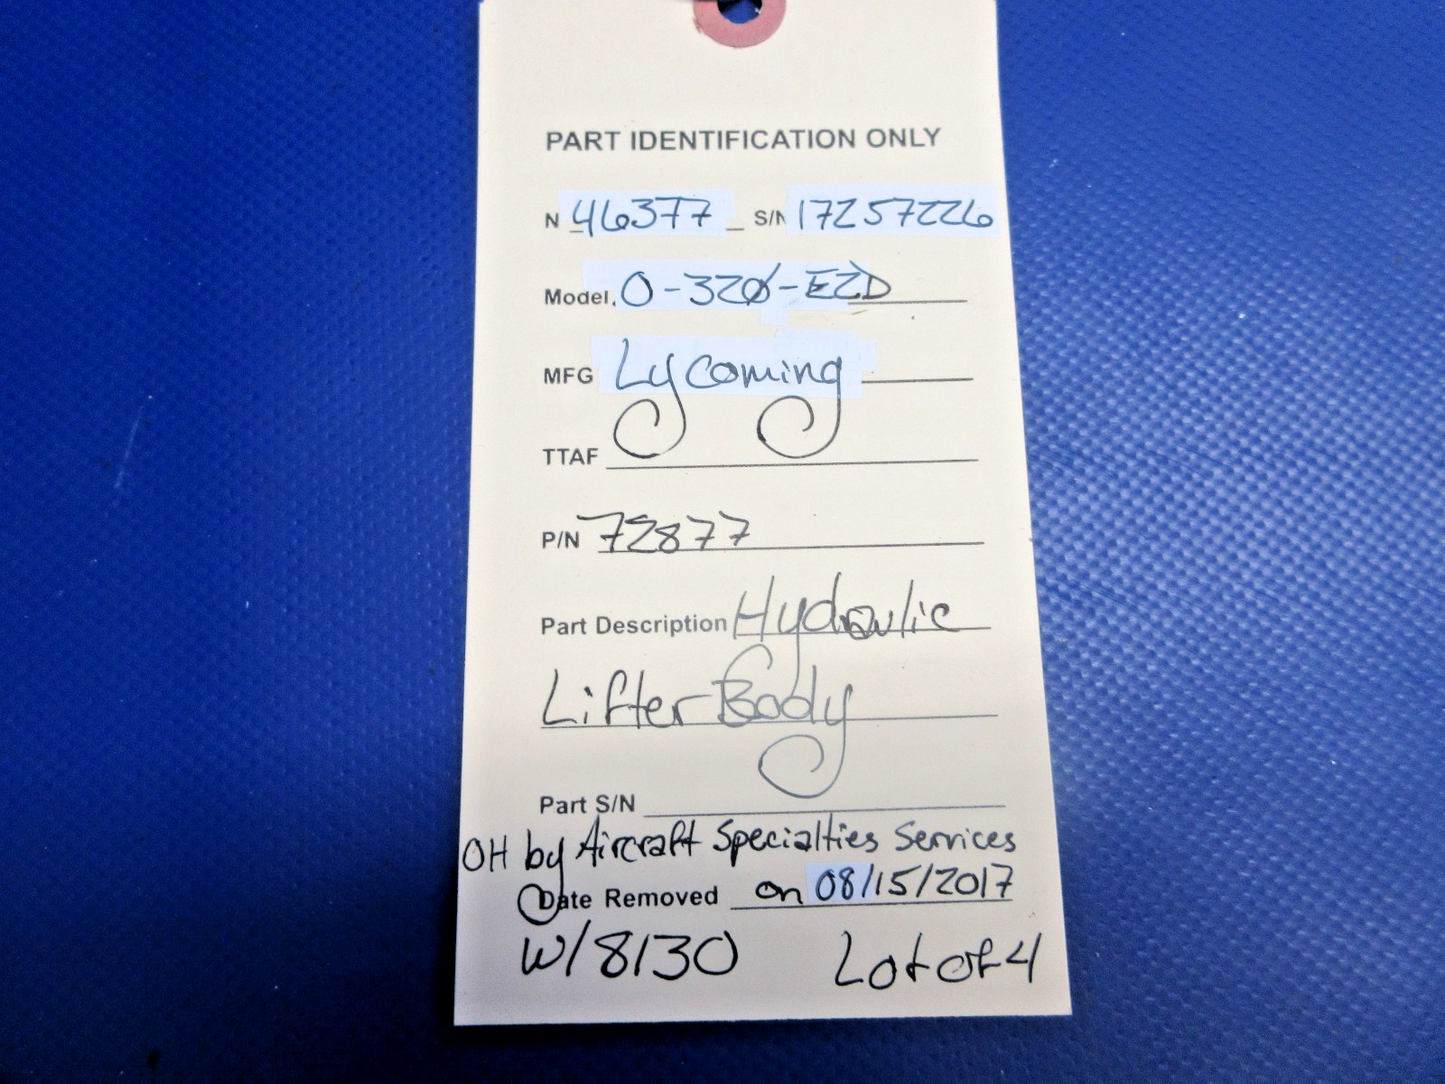 PART IDENTIFICATION ONLY
N 46377 S/N 17257226
Model. O-320-E2D
MFG Lycoming
TTAF
P/N 72877
Part Description Hydraulic
Lifter Body
Part S/N
OH by Aircraft Specialties Services
Date Removed on 08/15/2017
W/8130 Lot of 4